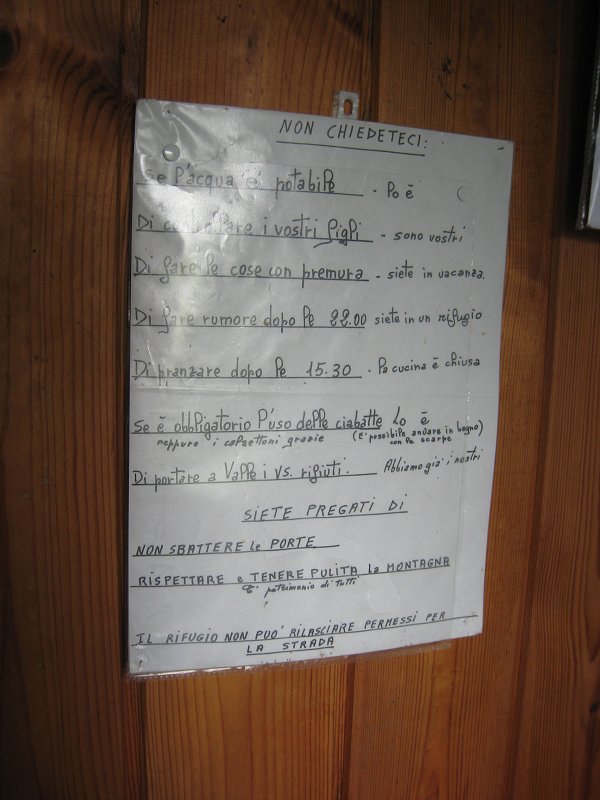 NON CHIEDETECI:
Se l'acqua è potabile - lo è
Di controllare i vostri figli - sono vostri
Di fare le cose con premura - siete in vacanza
Di fare rumore dopo le 22.00 siete in un rifugio
Di pranzare dopo le 15.30 - la cucina è chiusa
Se è obbligatorio l'uso delle ciabatte Lo è
neppure i calzettoni grazie (E' possibile andare in bagno)
con le scarpe
Di portare a Valle i Vs. rifiuti. Abbiamo già i nostri
SIETE PREGATI DI
NON SBATTERE le PORTE
RISPETTARE e TENERE PULITA la MONTAGNA
E' patrimonio di tutti
IL RIFUGIO NON PUO' RILASCIARE PERMESSI PER
LA STRADA